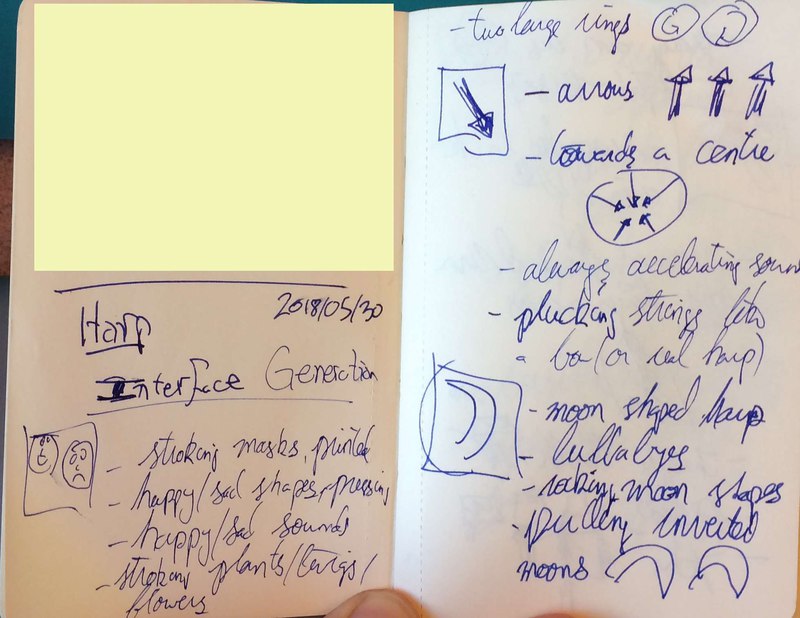 2018/05/30
Harp
Interface Generation
- stroking masks, printed
- happy/sad shapes, pressing
- happy/sad sounds
- stroking plants/twigs/
flowers
- two large rings G D
- arrows
- towards a centre
- always accelerating sound
- plucking strings like
a (or real harp)
- moon shaped harp
- lullabyes
- rocking moon shapes
- pulling inverted
moons